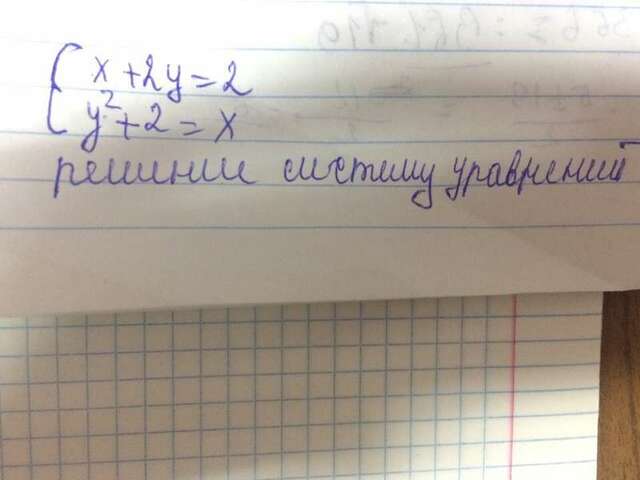 x + 2y = 2
y² + 2 = x
решении систему уравнений